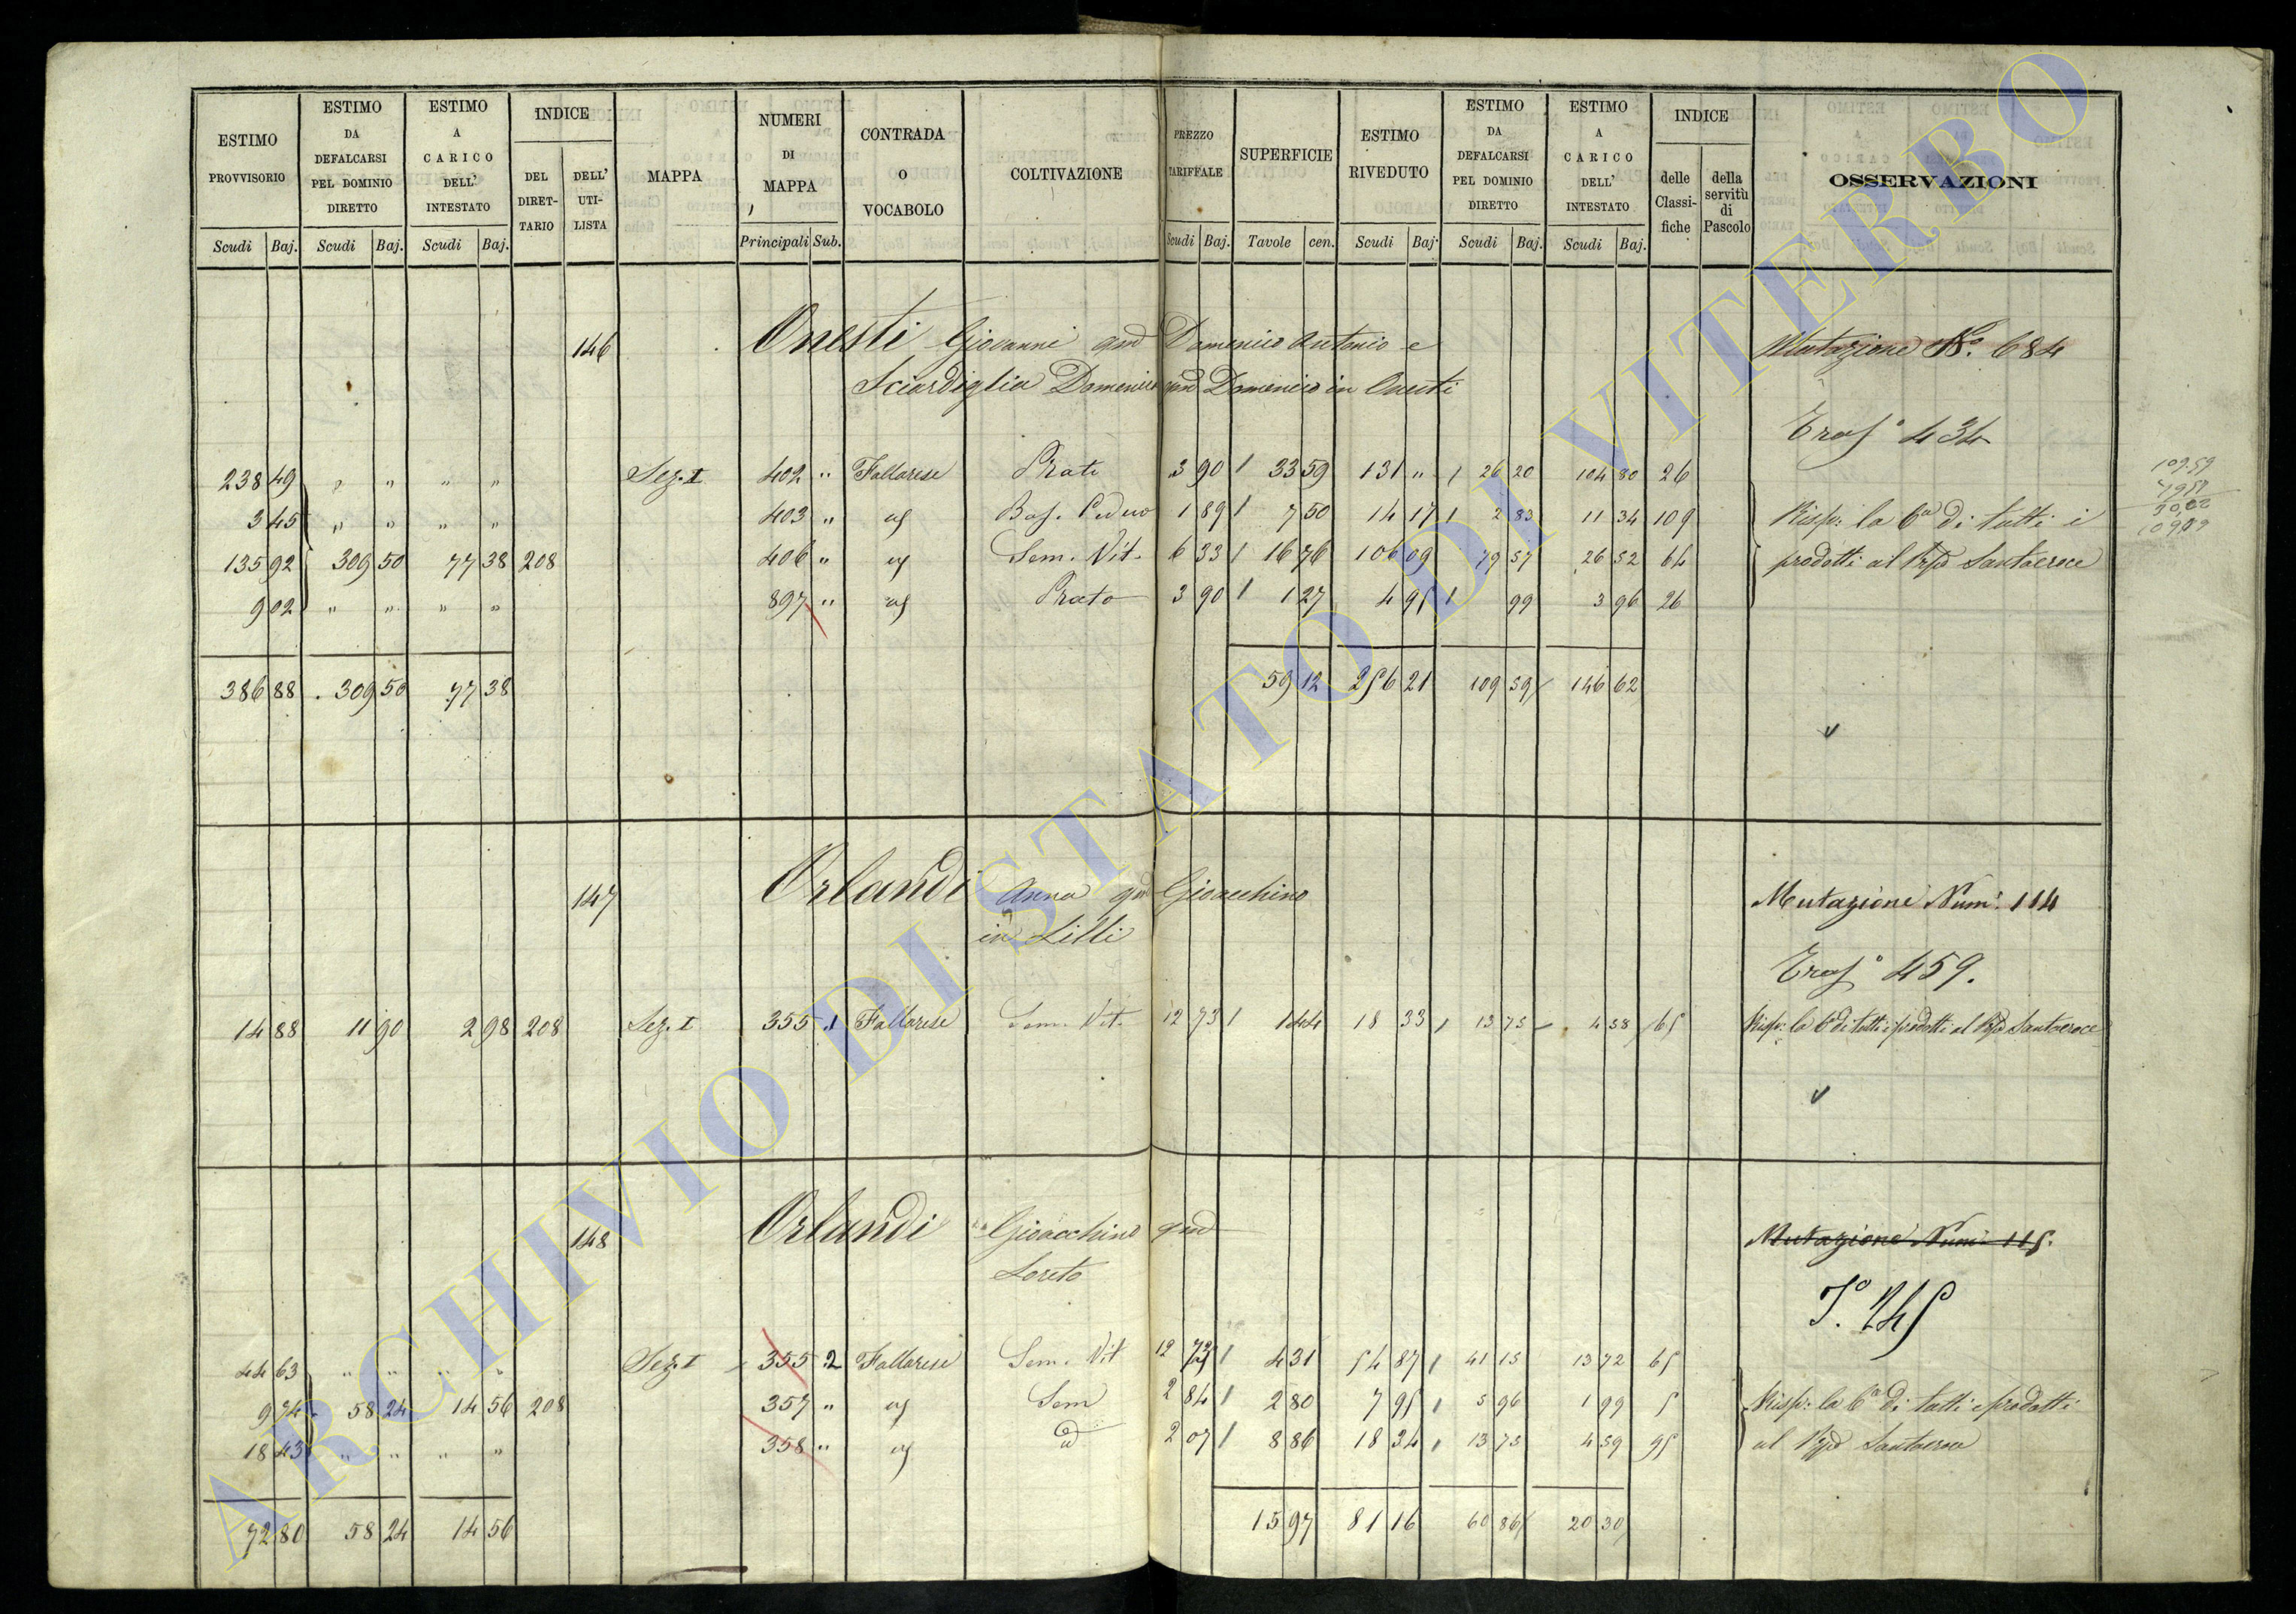 ESTIMO PROVVISORIO | ESTIMO DA DEFALCARSI PEL DOMINIO DIRETTO | ESTIMO A CARICO DELL' INTESTATO | INDICE DEL DIRET-TARIO | DELL' UTI-LISTA | MAPPA | NUMERI DI MAPPA | CONTRADA O VOCABOLO | COLTIVAZIONE | PREZZO TARIFFALE | SUPERFICIE | ESTIMO RIVEDUTO | ESTIMO DA DEFALCARSI PEL DOMINIO DIRETTO | ESTIMO A CARICO DELL' INTESTATO | INDICE delle Classi-fiche | della servitù di Pascolo | OSSERVAZIONI
Scudi Baj. Scudi Baj. Scudi Baj. Principali Sub. Scudi Baj. Tavole cen. Scudi Baj. Scudi Baj. Scudi Baj.
146 Onesti Giovanni qud Domenico Antonio e Mutazione No. 684
Sciardiglia Domenica qud Domenico in Onesti
Trasf.o 434
238 49 " " " " Sez. I 402 " Fallarese Prato 3 90 33 59 131 " 26 20 104 80 26
3 45 " " " " 403 " id Bos. Ceduo 1 89 7 50 14 17 2 83 11 34 109 Risp: la 6a di tutti i
135 92 309 50 77 38 208 406 " id Sem. Vit. 6 33 16 76 106 09 79 57 26 52 64 prodotti al Santacroce
9 02 " " " " 897 " id Prato 3 90 1 27 4 95 99 3 96 26
386 88 309 50 77 38 59 12 256 21 109 59 146 62
147 Orlandi Anna qud Gioacchino Mutazione Num. 114
in Lilli
Trasf.o 459.
14 88 11 90 2 98 208 Sez. I 355 1 Fallarese Sem. Vit. 12 73 1 44 18 33 13 75 4 58 65 Risp: la 6a di tutti i prodotti al Santacroce
148 Orlandi Gioacchino qud Mutazione Num. 115.
Loreto
44 63 " " " " Sez. I 355 2 Fallarese Sem. Vit 12 73 4 31 54 87 41 15 13 72 65
9 74 58 24 14 56 208 357 " id Sem 2 84 2 80 7 95 5 96 1 99 5 Risp: la 6a di tutti i prodotti
18 43 " " " " 358 " id id 2 07 8 86 18 34 13 75 4 59 95 al Santacroce
72 80 58 24 14 56 15 97 81 16 60 86 20 30
ARCHIVIO DI STATO DI VITERBO